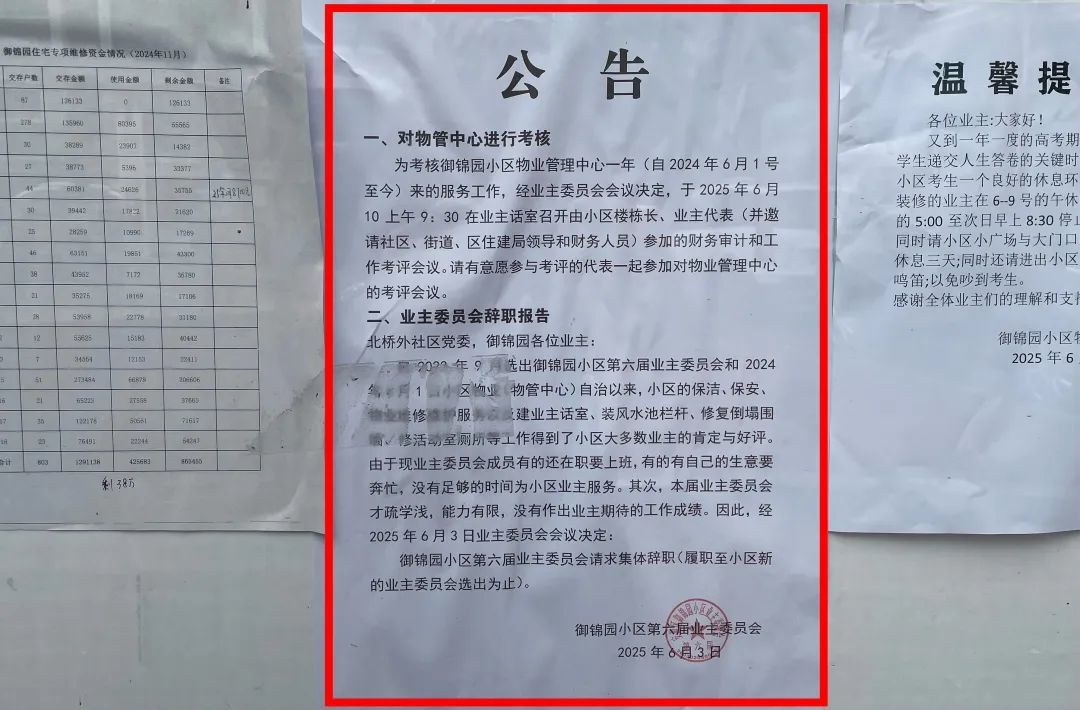 御锦园住宅专项维修资金情况（2024年11月）
交存户数 交存金额 使用金额 剩余金额 备注
87 126133 0 126133
278 135960 80395 55565
30 38289 23907 14382
27 38773 5396 33377
44 60381 24626 35755
30 39442 17822 21620
25 28259 10990 17269
46 63151 19851 43300
38 43952 7172 36780
21 35275 18169 17106
28 53958 22778 31180
12 55625 15183 40442
7 34564 12153 22411
51 273484 66878 206606
21 65223 27558 37665
35 122178 50561 71617
23 76491 22244 54247
合计 803 1291138 425683 865455
剩38万
公 告
一、对物管中心进行考核
为考核御锦园小区物业管理中心一年（自 2024 年 6 月 1 号
至今）来的服务工作，经业主委员会会议决定，于 2025 年 6 月
10 上午 9：30 在业主话室召开由小区楼栋长、业主代表（并邀
请社区、街道、区住建局领导和财务人员）参加的财务审计和工
作考评会议。请有意愿参与考评的代表一起参加对物业管理中心
的考评会议。
二、业主委员会辞职报告
北桥外社区党委，御锦园各位业主：
年 9 月选出御锦园小区第六届业主委员会和 2024
年 月 1 日小区物业（物管中心）自治以来，小区的保洁、保安、
物业维修维护服务 建业主话室、装风水池栏杆、修复倒塌围
墙、修活动室厕所等工作得到了小区大多数业主的肯定与好评。
由于现业主委员会成员有的还在职要上班，有的有自己的生意要
奔忙，没有足够的时间为小区业主服务。其次，本届业主委员会
才疏学浅，能力有限，没有作出业主期待的工作成绩。因此，经
2025 年 6 月 3 日业主委员会会议决定：
御锦园小区第六届业主委员会请求集体辞职（履职至小区新
的业主委员会选出为止）。
御锦园小区第六届业主委员会
2025 年 6 月 3 日
温 馨 提
各位业主:大家好！
又到一年一度的高考期
学生递交人生答卷的关键时
小区考生一个良好的休息环
装修的业主在 6--9 号的午休
的 5:00 至次日早上 8:30 停止
同时请小区小广场与大门口
休息三天;同时还请进出小区
鸣笛;以免吵到考生。
感谢全体业主们的理解和支持
御锦园小区物
2025 年 6